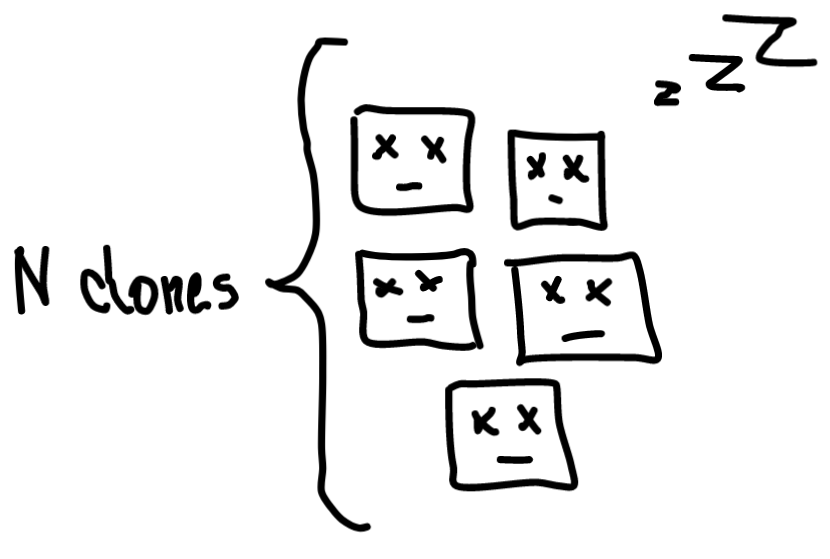 z z Z
N clones